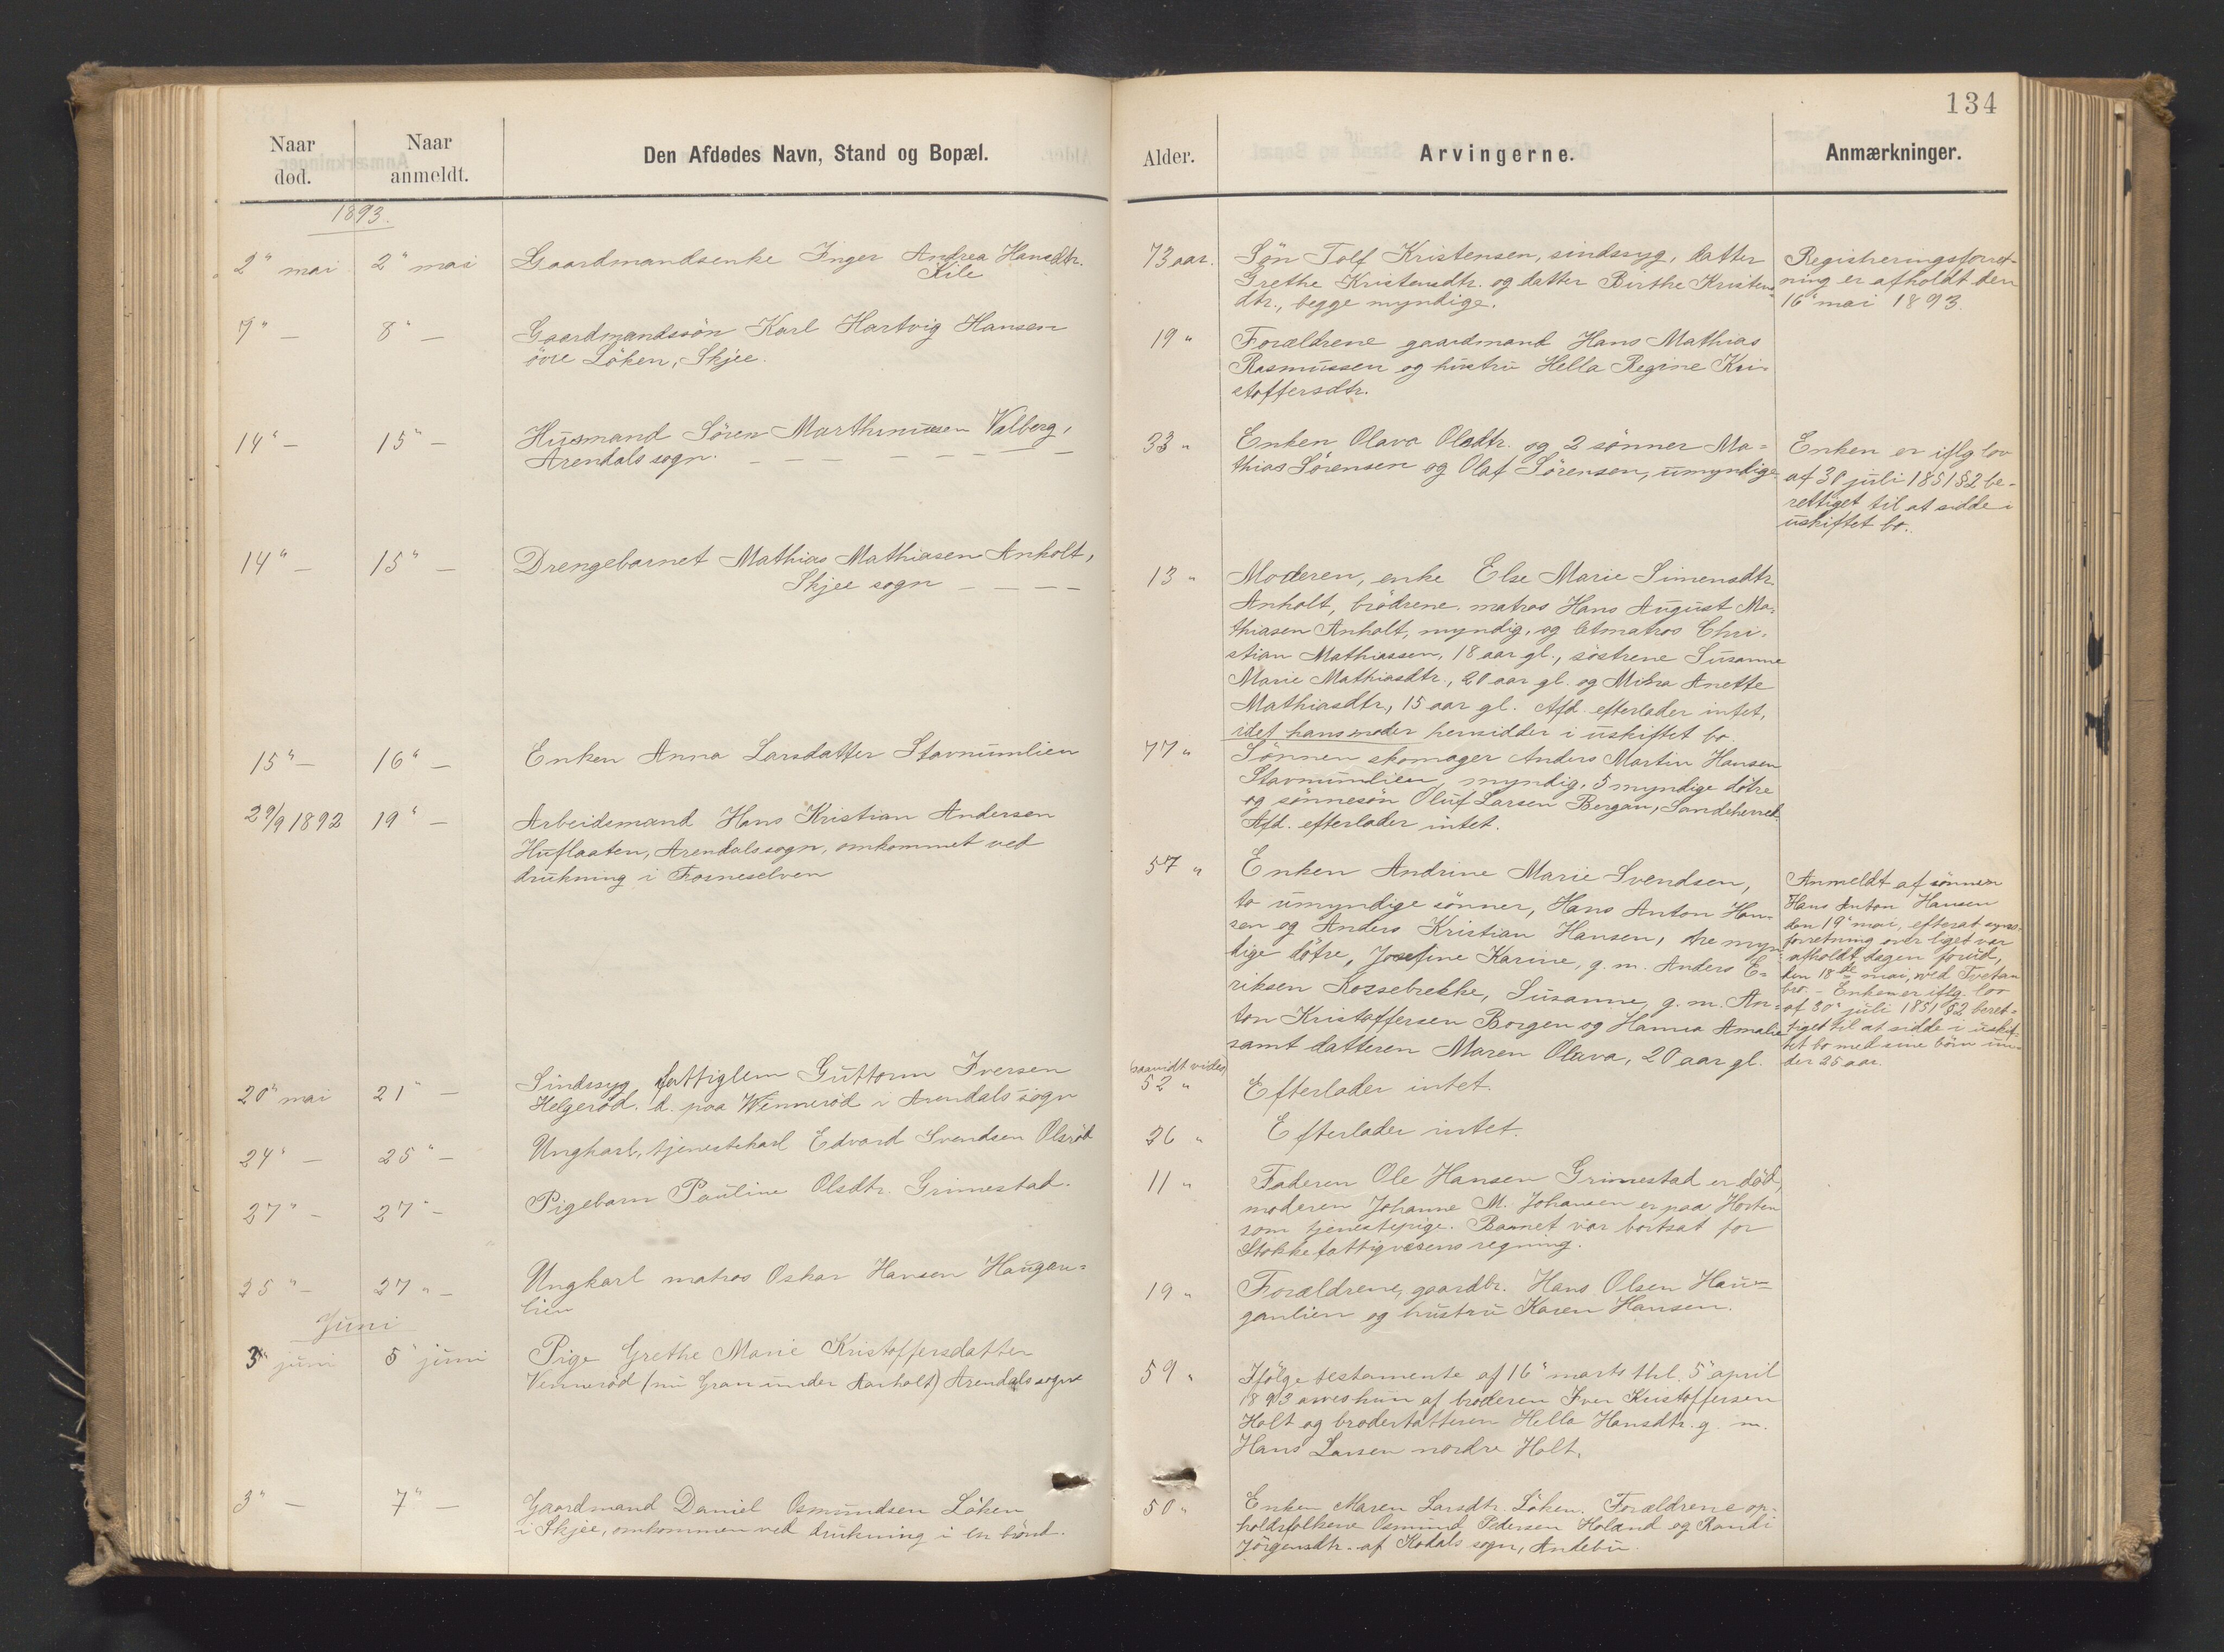 134
Naar død.
Naar anmeldt.
Den Afdødes Navn, Stand og Bopæl.
Alder.
Arvingerne.
Anmærkninger.
1893.
2" mai
2" mai
Gaardmandsenke Inger Andrea Hansdtr.
Kile
73 aar.
Søn Tolf Kristensen, sindssyg, datter
Grethe Kristensdtr. og datter Birthe Kristens
dtr., begge myndige.
Registreringsforret-
ning er afholdt den
16" mai 1893.
7" —
8" —
Gaardmandssön Karl Hartvig Hansen
övre Löken, Skjee.
19 "
Forældrene gaardmand Hans Mathias
Rasmussen og hustru Hella Regine Kri-
stoffersdtr.
14" —
15" —
Husmand Sören Marthinussen Valberg,
Arendals sogn.
33 "
Enken Olava Olsdtr. og 2 sönner Ma=
thias Sörensen og Olaf Sörensen, umyndige
Enken er iflg lov
af 30 juli 1851 §2 be-
rettiget til at sidde i
uskiftet bo.
14" —
15" —
Drengebarnet Mathias Mathiasen Anholt,
Skjee sogn
13 "
Moderen, enke Else Marie Simensdtr.
Anholt, brödrene matros Hans August Ma=
thiasen Anholt, myndig, og letmatros Chri-
stian Mathiassen, 18 aar gl., söstrene Susanne
Marie Mathiasdtr., 20 aar gl. og Anette
Mathiasdtr, 15 aar gl. Afd. efterlader intet,
idet hans moder hensidder i uskiftet bo.
15" —
16" —
Enken Anna Larsdatter Stavnumlien
77 "
Sönnen skomager Anders Martin Hansen
Stavnumlien, myndig, 5 myndige dötre
og sönnesön Oluf Larsen Bergan, Sandeherred.
Afd. efterlader intet.
29/9 1892
19" —
Arbeidsmand Hans Kristian Andersen
Huflaaten, Arendals sogn, omkommet ved
drukning i Fosneselven
57 "
Enken Andrine Marie Svendsen,
to umyndige sönner, Hans Anton Han-
sen og Anders Kristian Hansen, tre myn-
dige dötre, Josefine Karine, g. m. Anders E=
riksen Rossebrekke, Susanne, g. m. An-
ton Kristoffersen Borgen og Hanna Amalie
samt datteren Maren Olava, 20 aar gl.
Anmeldt af sönnen
Hans Anton Hansen
den 19" mai, efterat syns-
forretning over liget var
afholdt dagen forud,
den 18de mai, ved Tvetan
bro. – Enken er iflg. lov
af 30" juli 1851 §2 beret-
tiget til at sidde i uskif-
tet bo med sine börn un-
der 25 aar.
20" mai
21" —
Sindssyg fattiglem Guttorm Iversen
Helgeröd. d. paa Wenneröd i Arendals sogn
saavidt vides
52 "
Efterlader intet.
24" —
25" —
Ungkarl, tjenestekarl Edvard Svendsen Olsröd
26 "
Efterlader intet.
27" —
27" —
Pigebarn Pauline Olsdtr. Grimestad.
11 "
Faderen Ole Hansen Grimestad er död,
moderen Johanne M. Johansen er paa Horten
som tjenestepige. Barnet var bortsat for
Stokke fattigvæsens regning.
25" —
27" —
Ungkarl matros Oskar Hansen Haugan=
lien
19 "
Forældrene, gaardbr. Hans Olsen Hau=
ganlien og hustru Karen Hansen.
Juni
3" juni
5" juni
Pige Grethe Marie Kristoffersdatter
Venneröd (nu Gran under Aarholt) Arendals sogn
59 "
Ifölge testamente af 16" marts thl. 5" april
1893 arves hun af broderen Iver Kristoffersen
Holt og broderdatteren Hella Hansdtr. g. m.
Hans Larsen nordre Holt.
3" —
7" —
Gaardmand Daniel Osmundsen Löken
i Skjee, omkommen ved drukning i en brönd.
50 "
Enken Maren Larsdtr. Löken. Forældrene op-
holdsfolkene Osmund Pedersen Holand og Randi
Jörgensdtr. af Kodals sogn, Andebu.